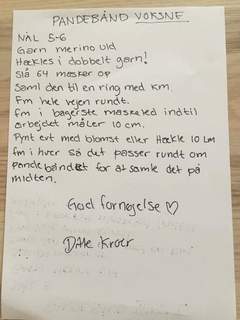 PANDEBÅND VOKSNE
NÅL 5-6
Garn merino uld
Hækles i dobbelt garn!
Slå 64 masker op
Saml den til en ring med km.
Fm hele vejen rundt.
fm i bagerste maskeled indtil
arbejdet måler 10 cm.
Pynt evt med blomst eller Hækle 10 Lm
fm i hver så det passer rundt om
pandebåndet for at samle det på
midten.
God fornøjelse ♡
Ditte Krøer